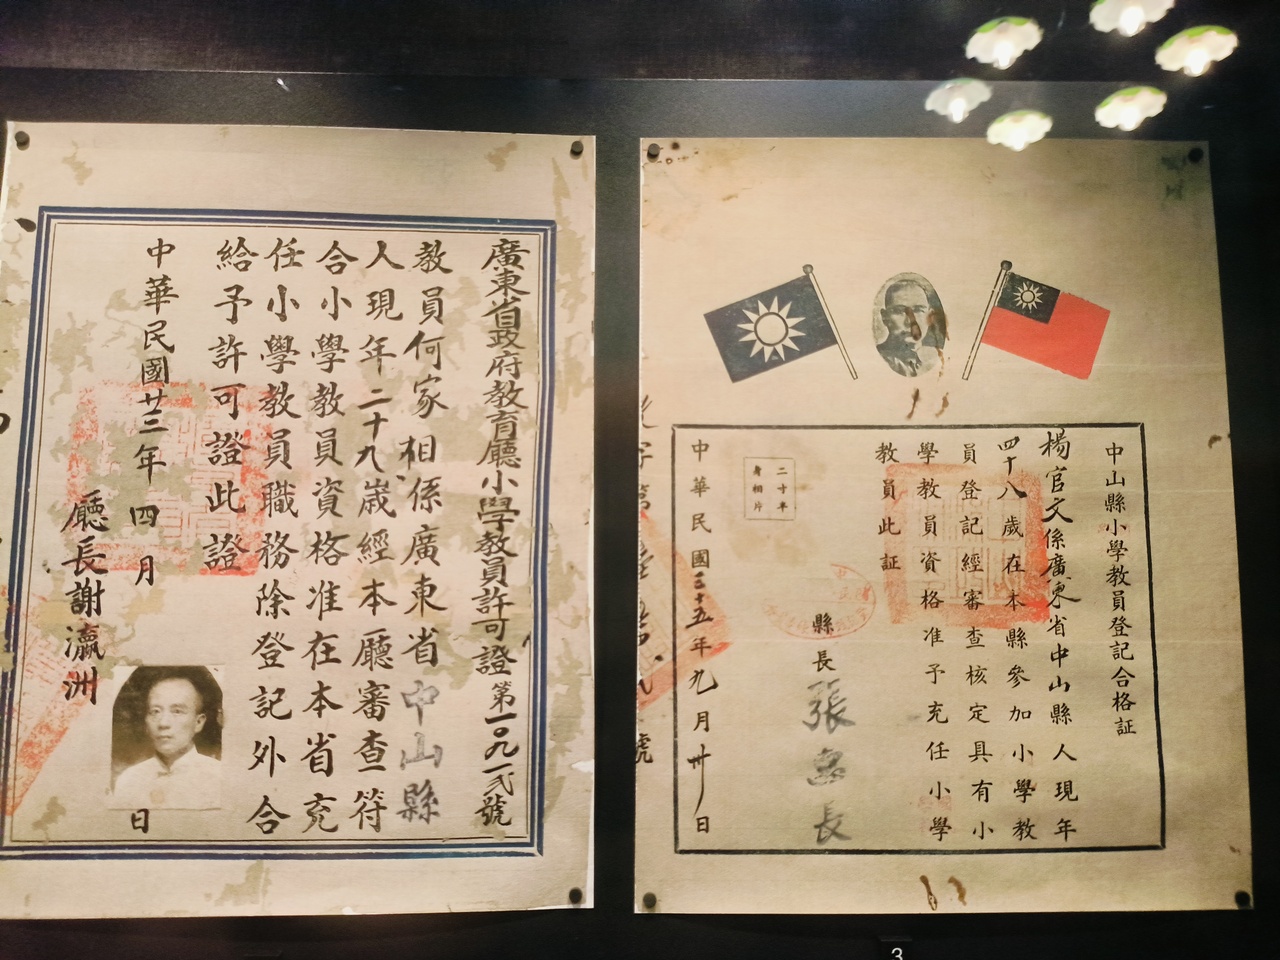 廣東省政府教育廳小學教員許可證第一〇九一弍號
教員何家相係廣東省中山縣
人現年二十九歲經本廳審查符
合小學教員資格准在本省充
任小學教員職務除登記外合
給予許可證此證
中華民國廿三年四月日
廳長謝瀛洲
中山縣小學教員登記合格証
楊官文係廣東省中山縣人現年
四十八歲在本縣參加小學教
員登記經審查核定具有小
學教員資格准予充任小學
教員此証
縣長張惠長
二十年
身相片
中華民國三十五年九月卅日
3